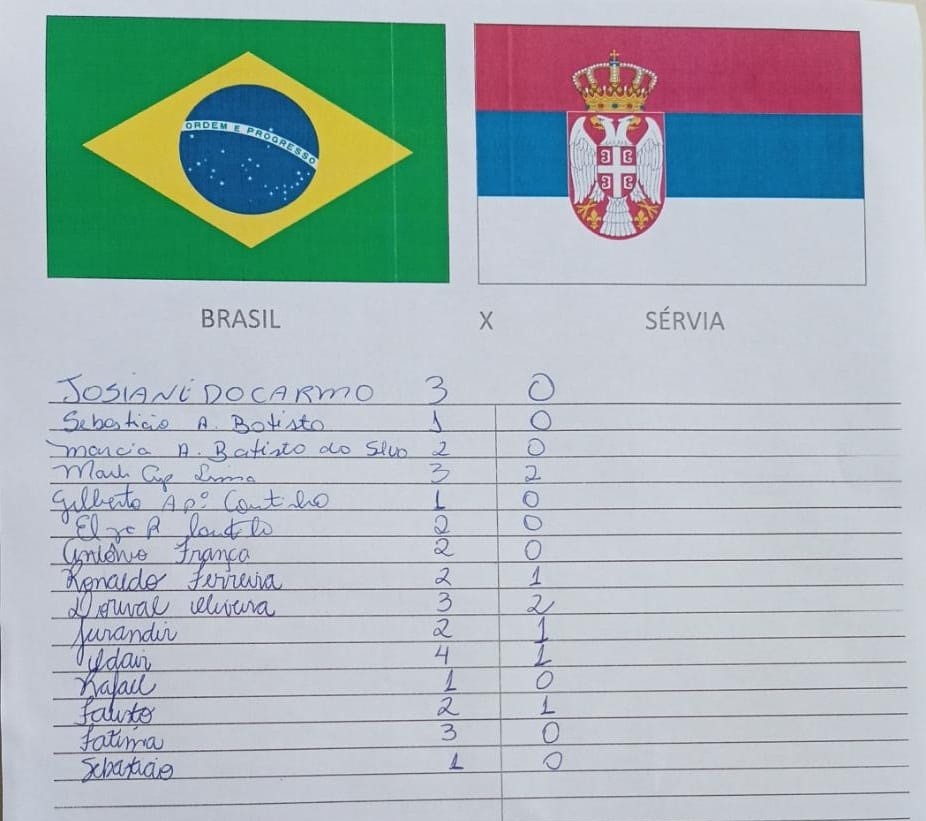 ORDEM E PROGRESSO
BRASIL X SÉRVIA
JOSIANE DO CARMO 3 0
Sebastião A. Batista 1 0
Marcia A. Batista da Silva 2 0
3 2
Gilberto Apº Coutinho 1 0
2 0
Antônio França 2 0
Ronaldo Ferreira 2 1
Dorival Oliveira 3 2
Jurandir 2 1
4 1
Rafael 1 0
Fausto 2 1
Fatima 3 0
Sebastião 1 0